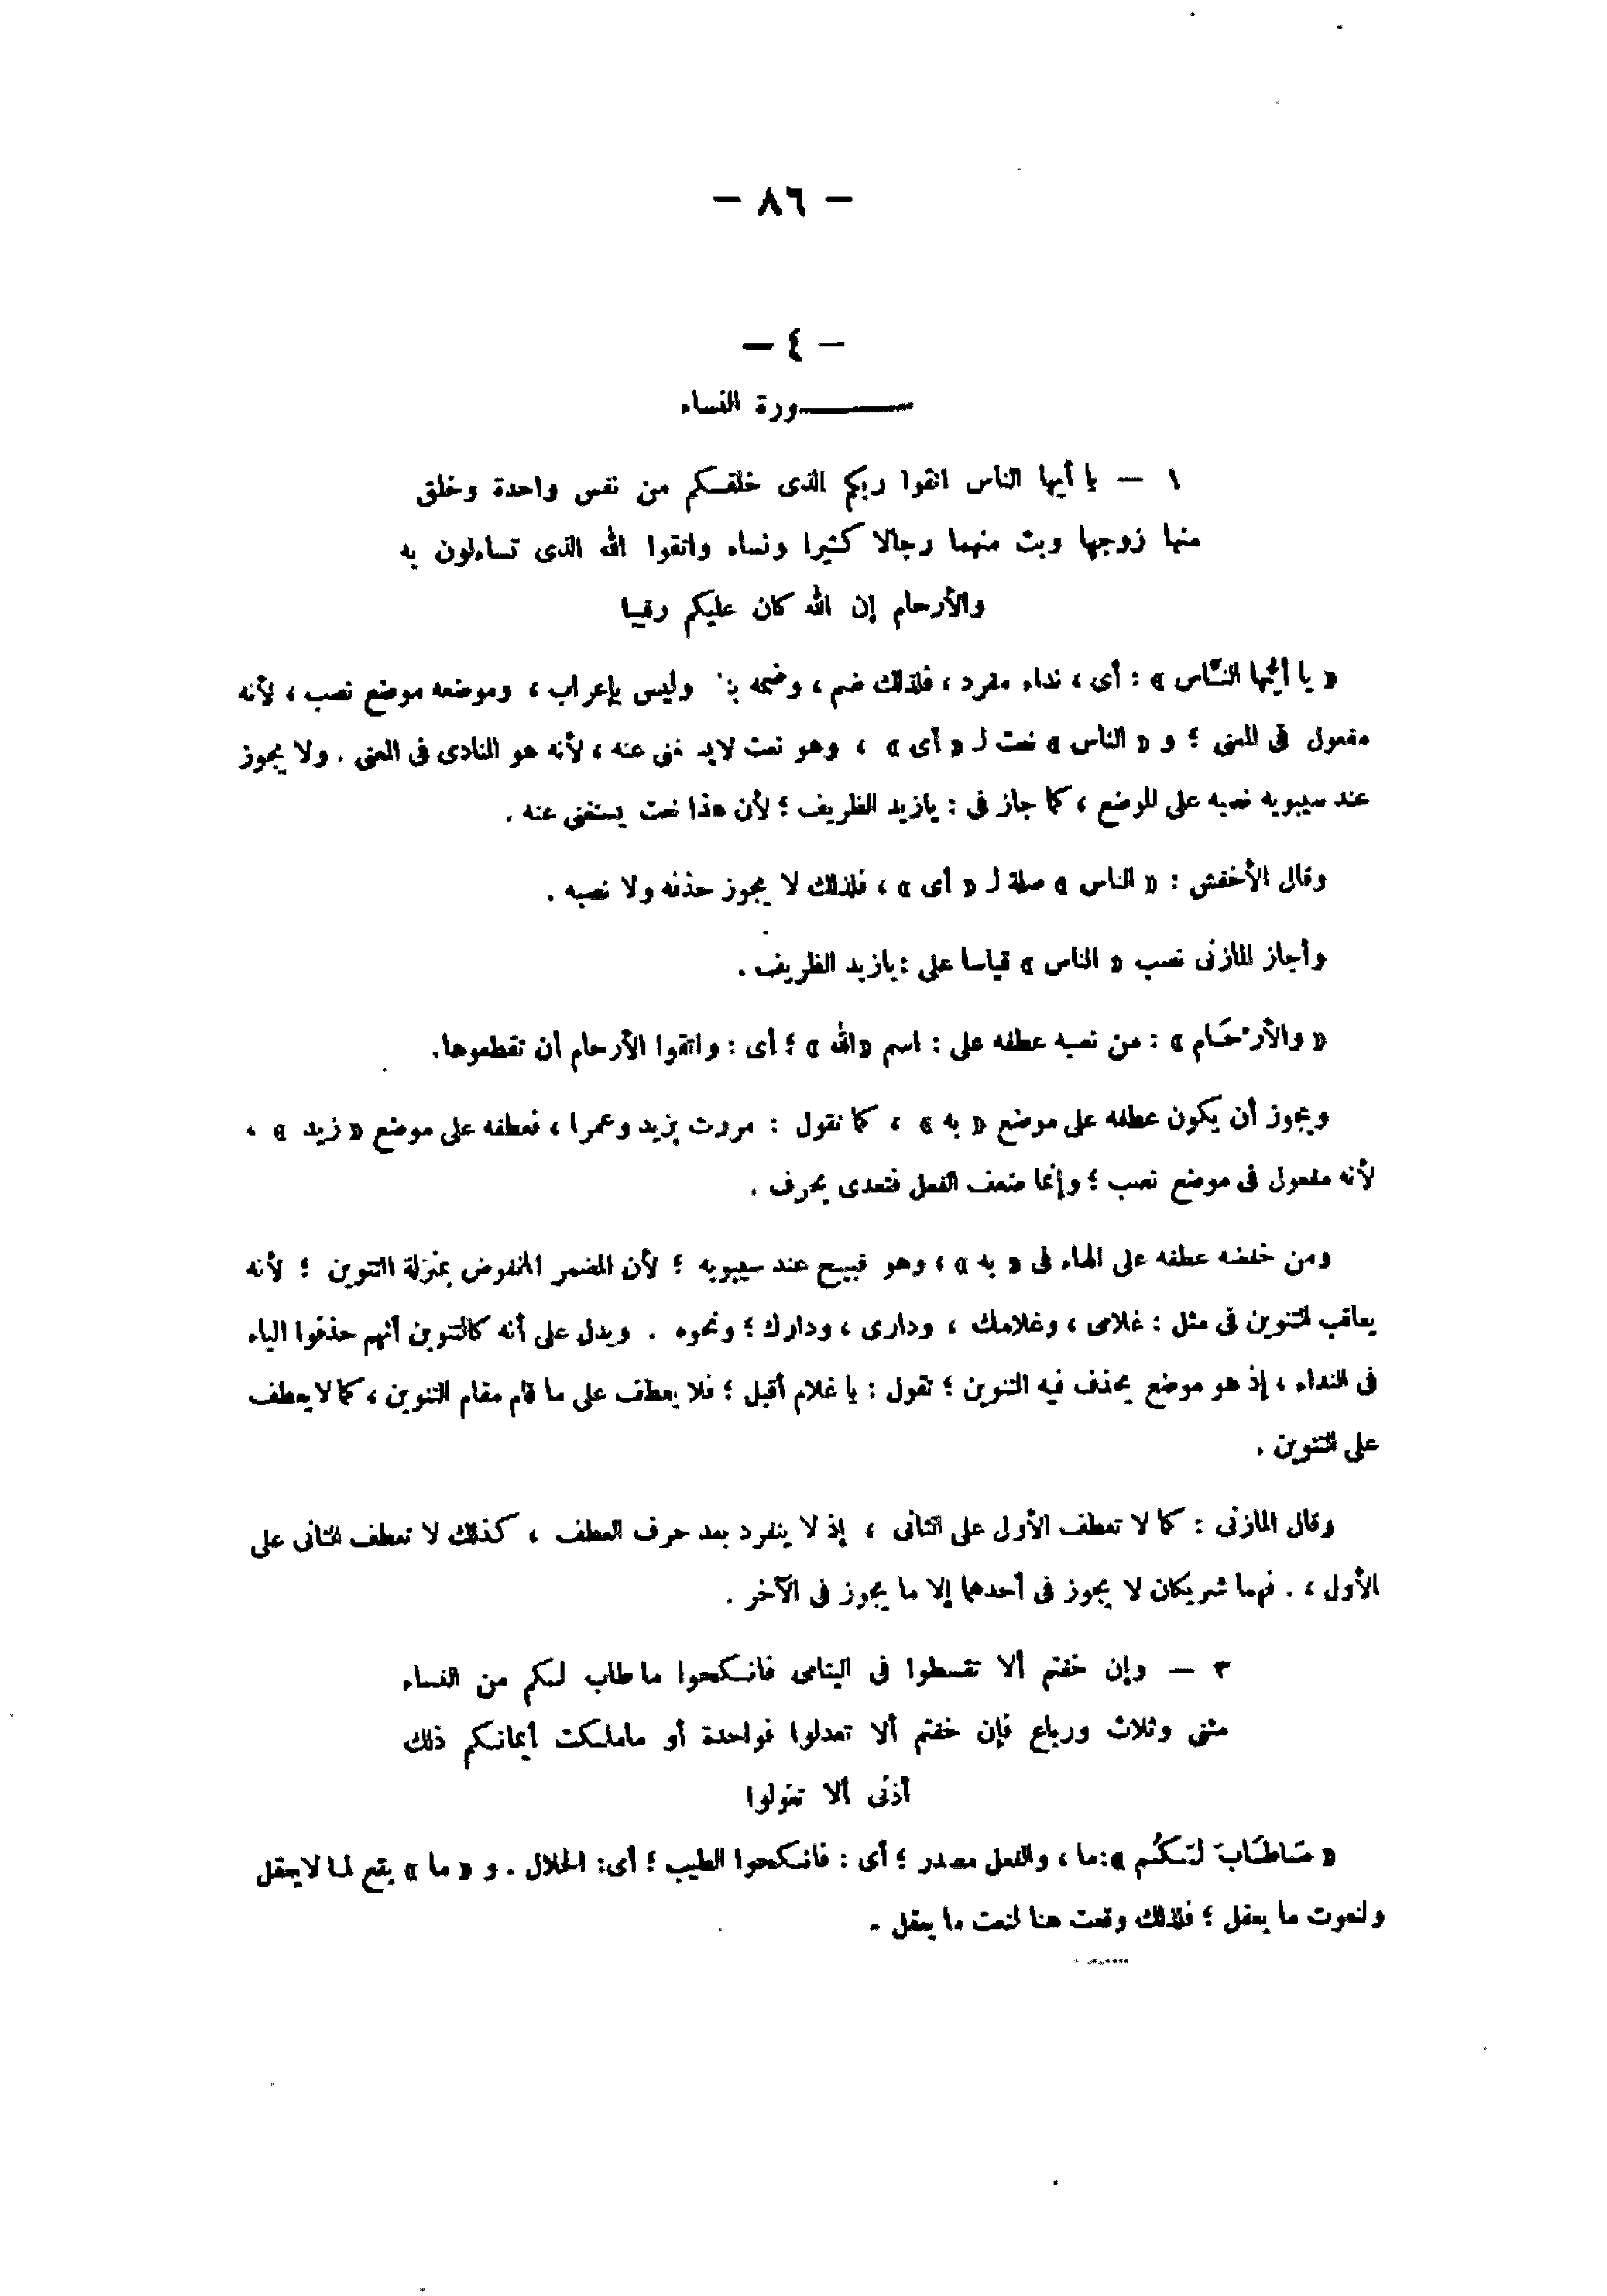 — ٨٦ —
— ٤ —
سورة النساء
١ — يا أيها الناس اتقوا ربكم الذى خلقكم من نفس واحدة وخلق
منها زوجها وبث منهما رجالا كثيرا ونساء واتقوا الله الذى تساءلون به
والأرحام إن الله كان عليكم رقيبا
« يا أيُّها النَّاس » : أى ، نداء مفرد ، فلذلك ضم ، وضمه وليس بإعراب ، وموضعه موضع نصب ، لأنه
مفعول فى المعنى ؛ و « الناس » نعت لـ « أى » ، وهو نعت لا عنه ، لأنه هو المنادى فى المعنى . ولا يجوز
عند سيبويه نصبه على الموضع ، كما جاز فى : يازيد الظريف ؛ لأن هذا نعت يستغنى عنه .
وقال الأخفش : « الناس » صلة لـ « أى » ، فلذلك لا يجوز حذفه ولا نصبه .
وأجاز المازنى نصب « الناس » قياسا على : يازيد الظريف .
« والأرْحَام » : من نصبه عطفه على : اسم «الله » ؛ أى : واتقوا الأرحام أن تقطعوها.
ويجوز أن يكون عطفه على موضع « به » ، كما تقول : مررت بزيد وعمرا ، فعطفه على موضع « زيد » ،
لأنه مفعول فى موضع نصب ؛ وإنما ضعف الفعل فتعدى بحرف .
ومن خفضه عطفه على الهاء فى « به » ، وهو قبيح عند سيبويه ؛ لأن المضمر المخفوض بمنزلة التنوين ؛ لأنه
يعاقب التنوين فى مثل : غلامى ، وغلامك ، ودارى ، ودارك ؛ ونحوه . ويدل على أنه كالتنوين أنهم حذفوا الياء
فى النداء ، إذ هو موضع يحذف فيه التنوين ؛ تقول : يا غلام أقبل ؛ فلا يعطف على ما قام مقام التنوين ، كما لا يعطف
على التنوين .
وقال المازنى : كما لا تعطف الأول على الثانى ، إذ لا ينفرد بعد حرف العطف ، كذلك لا تعطف الثانى على
الأول ، . فهما شريكان لا يجوز فى أحدهما إلا ما يجوز فى الآخر .
٣ — وإن خفتم ألا تقسطوا فى اليتامى فانكحوا ما طاب لكم من النساء
مثنى وثلاث ورباع فإن خفتم ألا تعدلوا فواحدة أو ماملكت أيمانكم ذلك
أدنى ألا تعولوا
« مَاطَابَ لَكُم »: ما ، والفعل مصدر ؛ أى : فانكحوا الطيب ؛ أى: الحلال . و « ما » يقع لما لايعقل
ولنعوت ما يعقل ؛ فلذلك وقعت هنا لنعت ما يعقل .